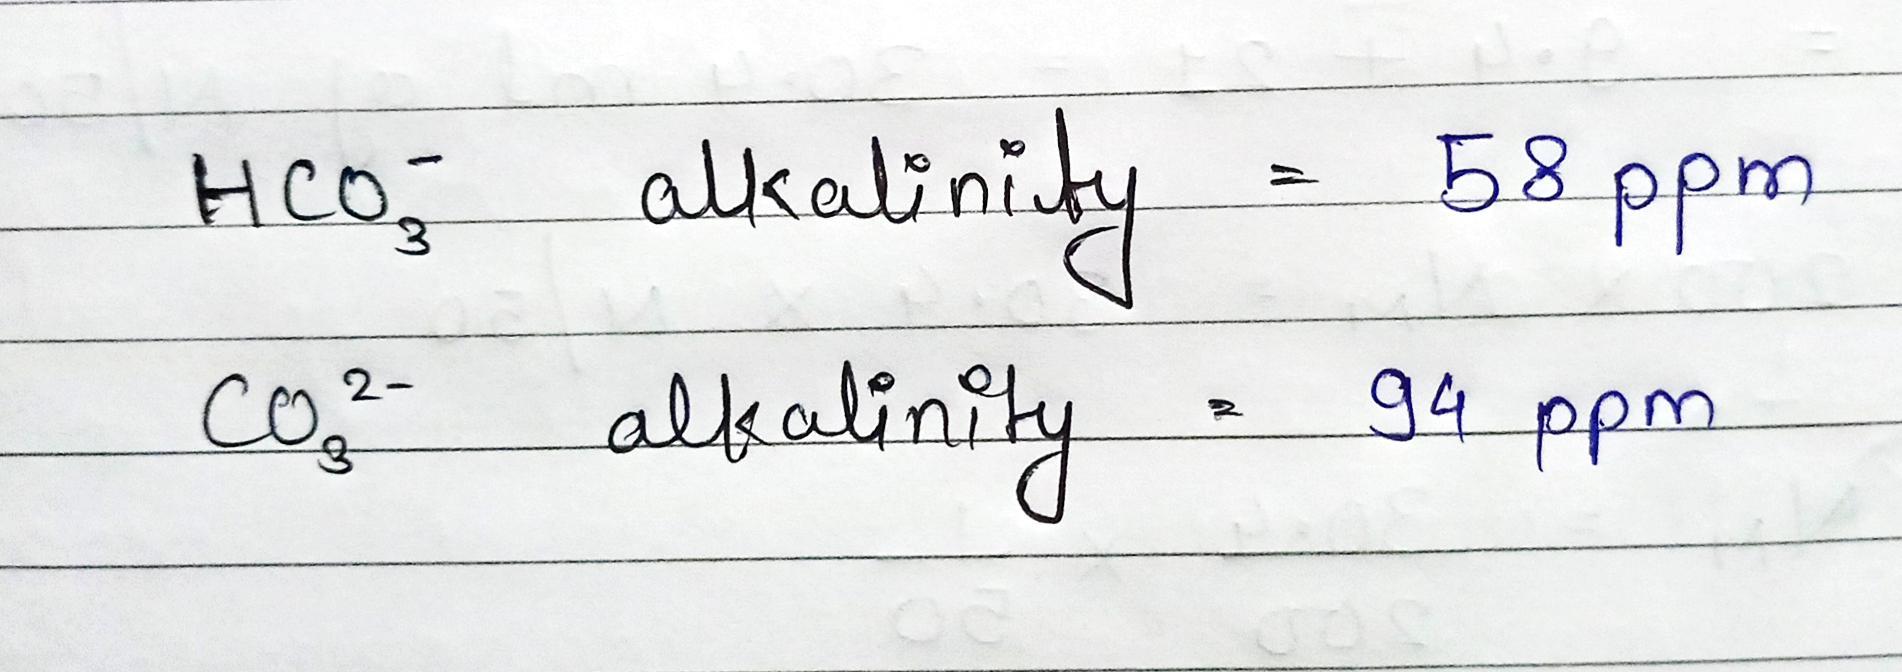 HCO₃⁻ alkalinity = 58 ppm
CO₃²⁻ alkalinity = 94 ppm